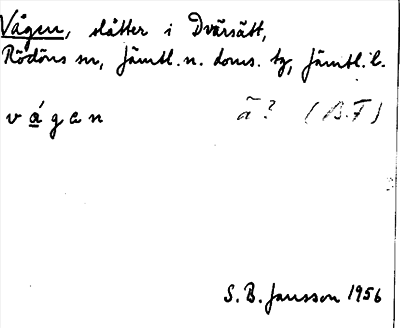 Vågen, slåtter i Dvärsätt,
Rödöns sn, Jämtl. n. doms. tg, Jämtl. l.
vágan ã? (B.F)
S. B. Jansson 1956